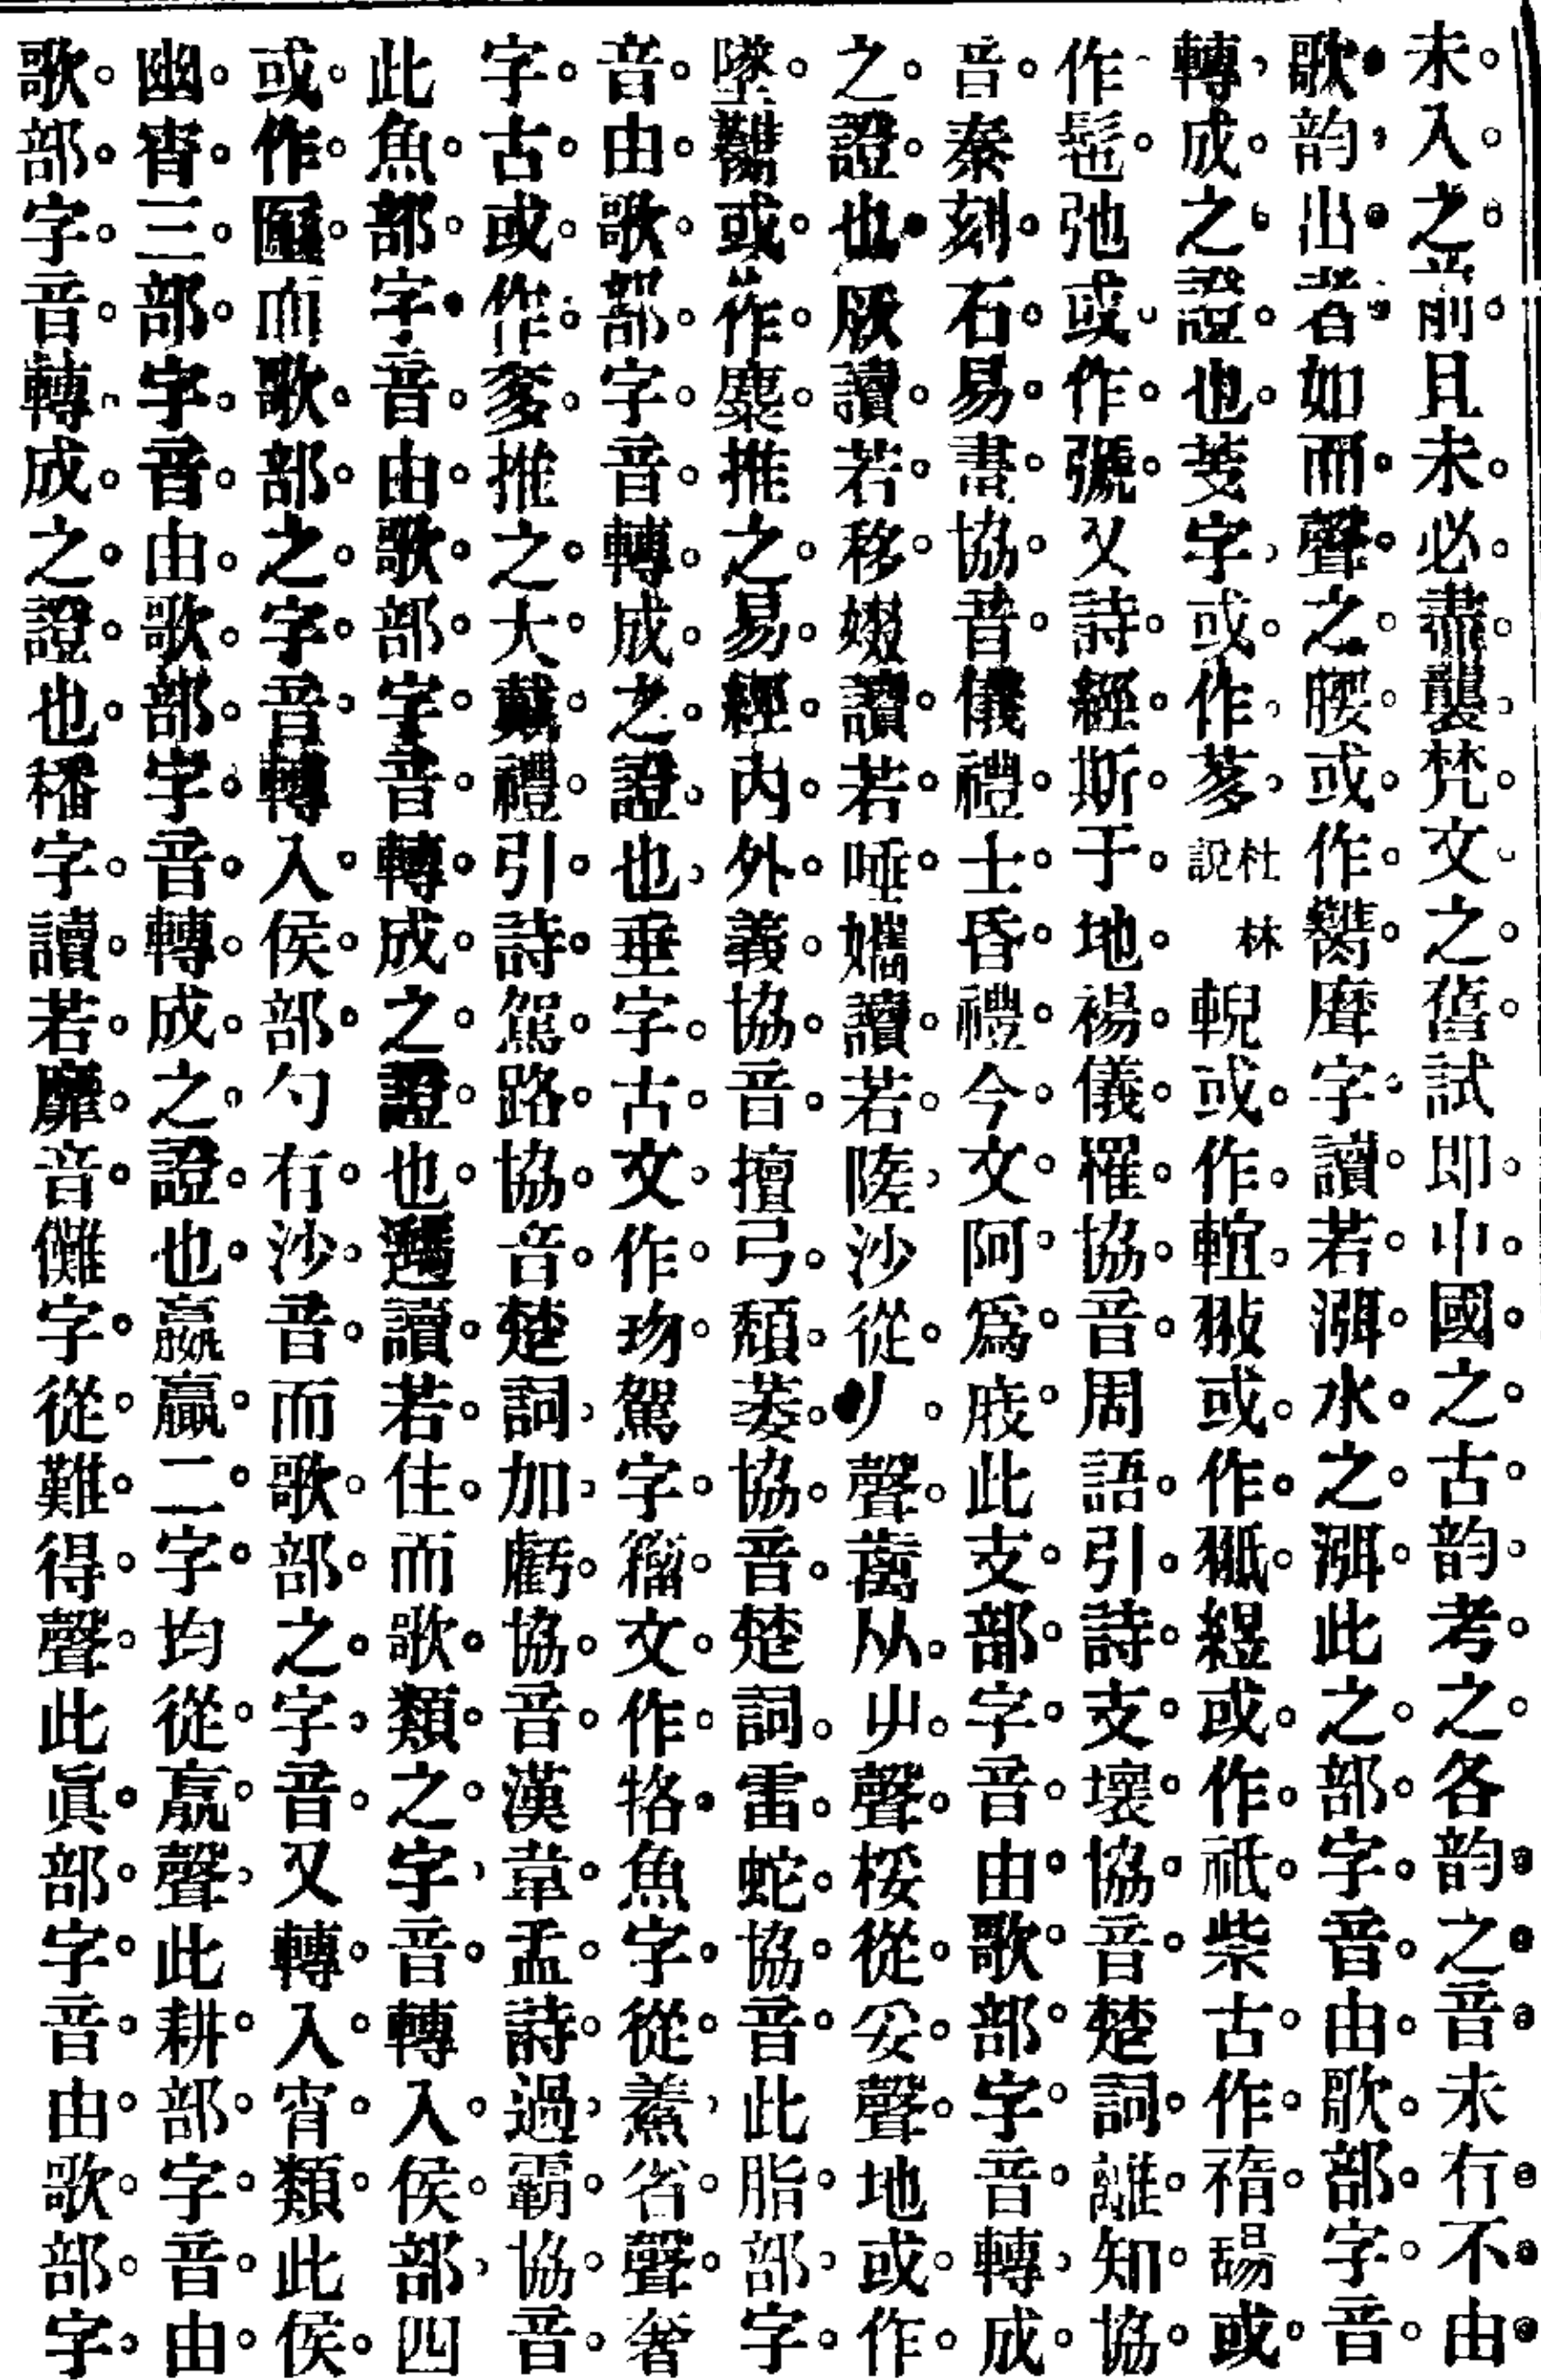 未入之前且未必盡襲梵文之舊試卽中國之古韵考之各韵之音未有不由
歌韵出者如而聲之腝或作臡麿字讀若渳水之渳此之部字音由歌部字音
轉成之證也芰字或作茤杜林說輗或作䡋猣或作猣緹或作祇柴古作㩻舓或
作髢弛或作號又詩經斯于地裼儀罹協音周語引詩支壞協音楚詞離知協
音秦刻石易書協音儀禮士昏禮今文阿爲庪此支部字音由歌部字音轉成
之證也厥讀若移娺讀若唾孈讀若隓沙從丿聲蔿从屮聲桵從妥聲地或作
墜鸛或作麋推之易經內外義協音檀弓頹萎協音楚詞雷蛇協音此脂部字
音由歌部字音轉成之證也垂字古文作𠂹駕字籀文作㸺魚字從𤋳省聲奢
字古或作奓推之大戴禮引詩駕路協音楚詞加虧協音漢韋孟詩過霸協音
此魚部字音由歌部字音轉成之證也䢪讀若住而歌類之字音轉入侯部四
或作匜而歌部之字音轉入侯部勺有沙音而歌部之字音又轉入宵類此侯
幽宵三部字音由歌部字音轉成之證也嬴贏二字均從㒹聲此耕部字音由
歌部字音轉成之證也䆀字讀若靡音儺字從難得聲此眞部字音由歌部字